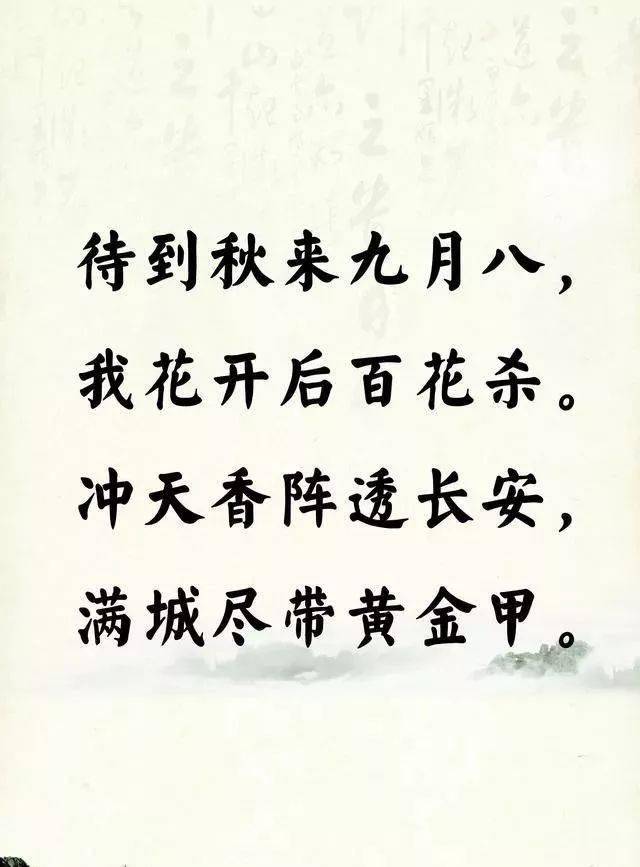 待到秋来九月八，
我花开后百花杀。
冲天香阵透长安，
满城尽带黄金甲。